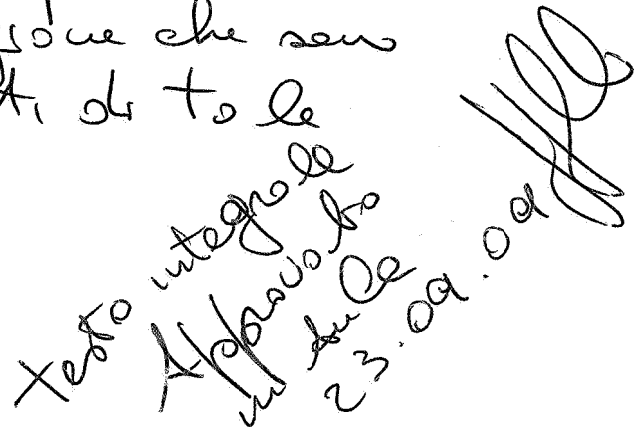 che sono
ti di tale
testo integrale
Approvato
in
23.09.09